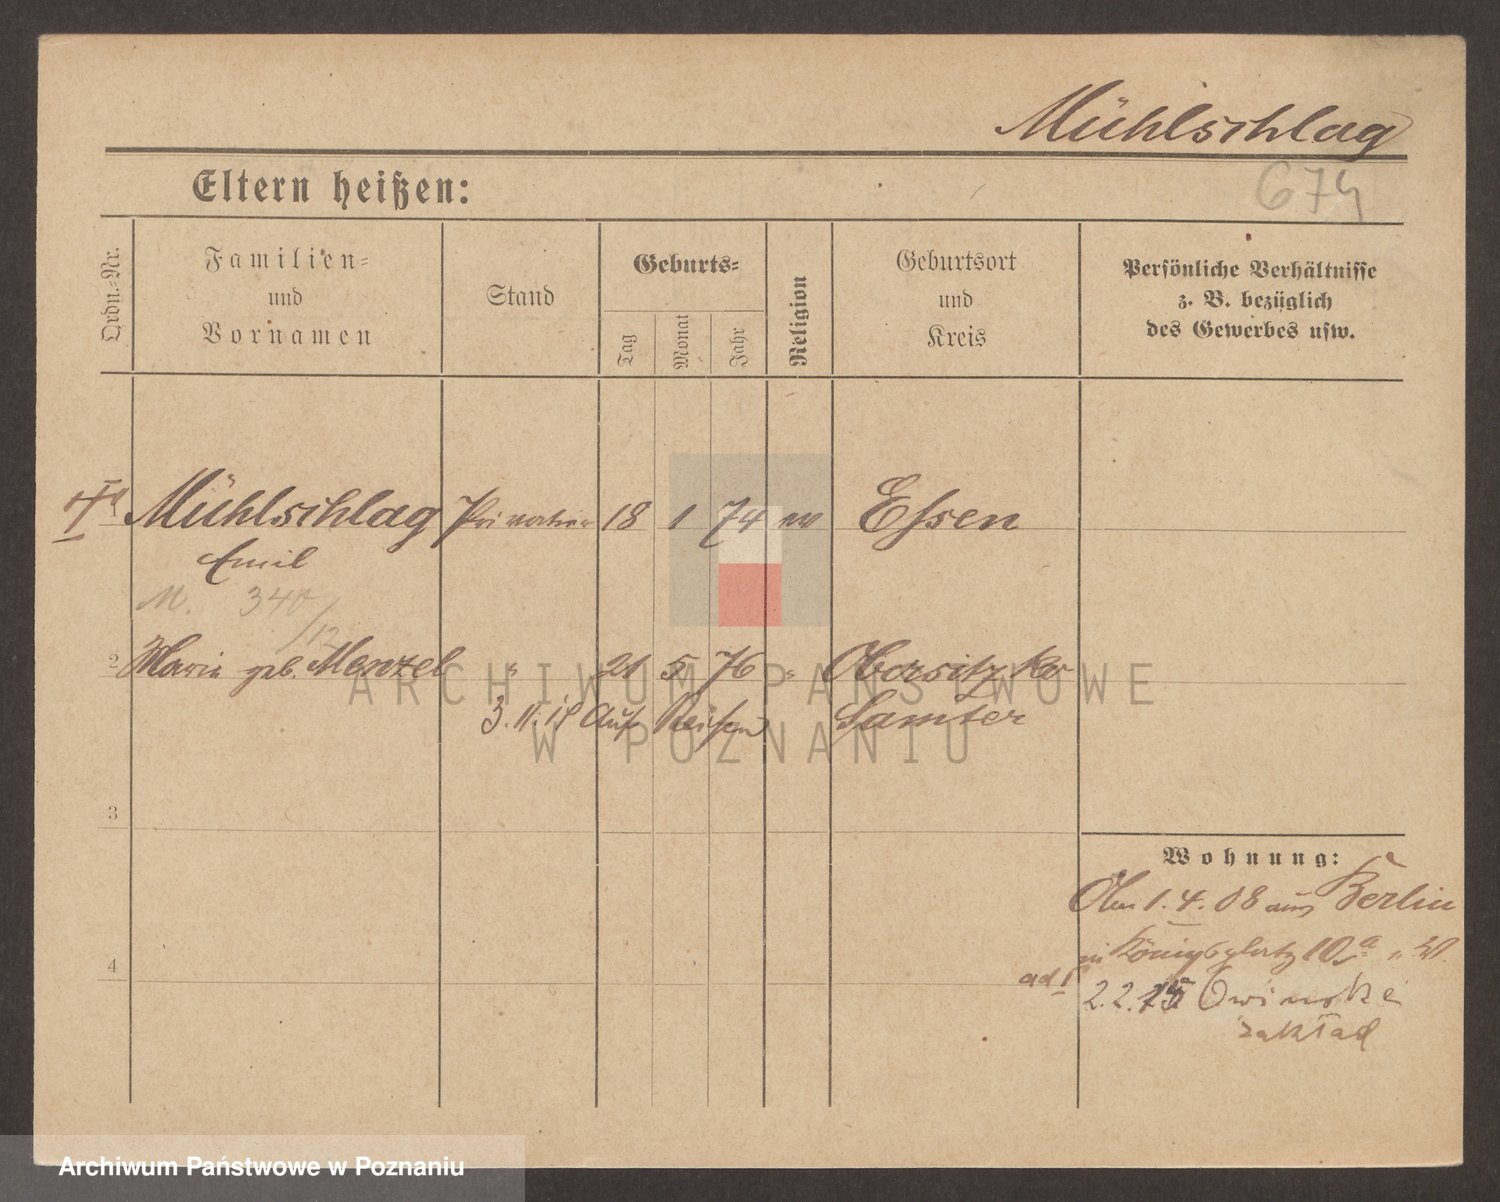 Mühlschlag
674
Eltern heißen:
Ordn.-Nr.
Familien-
und
Vornamen
Stand
Geburts-
Tag
Monat
Jahr
Religion
Geburtsort
und
Kreis
Persönliche Verhältnisse
z. B. bezüglich
des Gewerbes usw.
Mühlschlag Privatier 18 1 74 Essen
Emil
M. 340/12
2 Maria geb. Menzel " 21 5 76 " Obersitzko
3. 11. 18 Auf Reisen Samter
3
4
Wohnung:
1. 4. 08 aus Berlin
Königsplatz 10a
ad 1 2.2.15 Owinska
zakład
ARCHIWUM PAŃSTWOWE
W POZNANIU
Archiwum Państwowe w Poznaniu